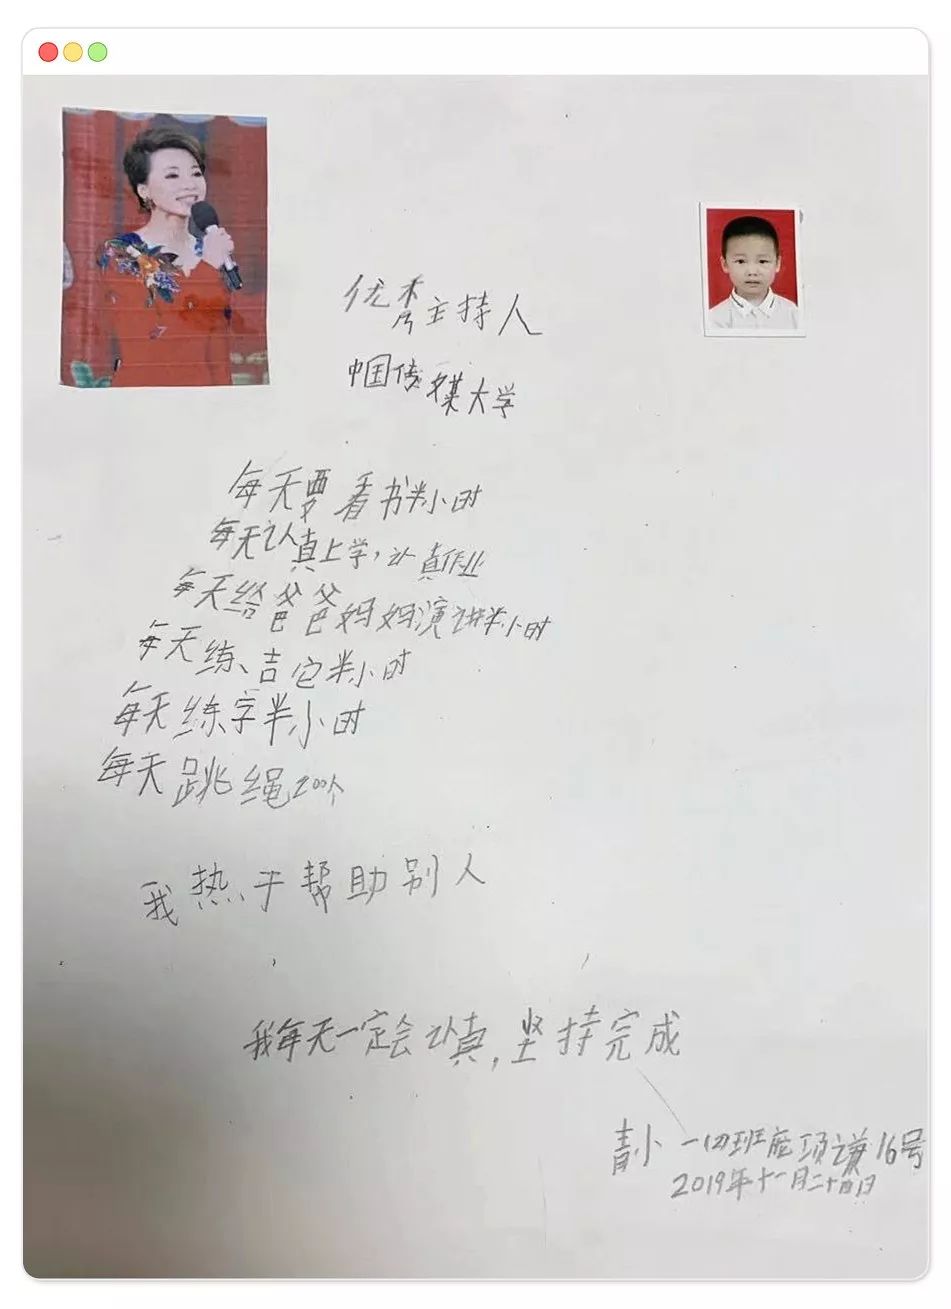 优秀主持人
中国传媒大学
每天要看书半小时
每天认真上学，认真作业
每天给爸爸妈妈演讲半小时
每天练吉它半小时
每天练字半小时
每天跳绳200个
我热于帮助别人
我每天一定会认真,坚持完成
青小 一(4)班 项谦16号
2019年十一月二十四日